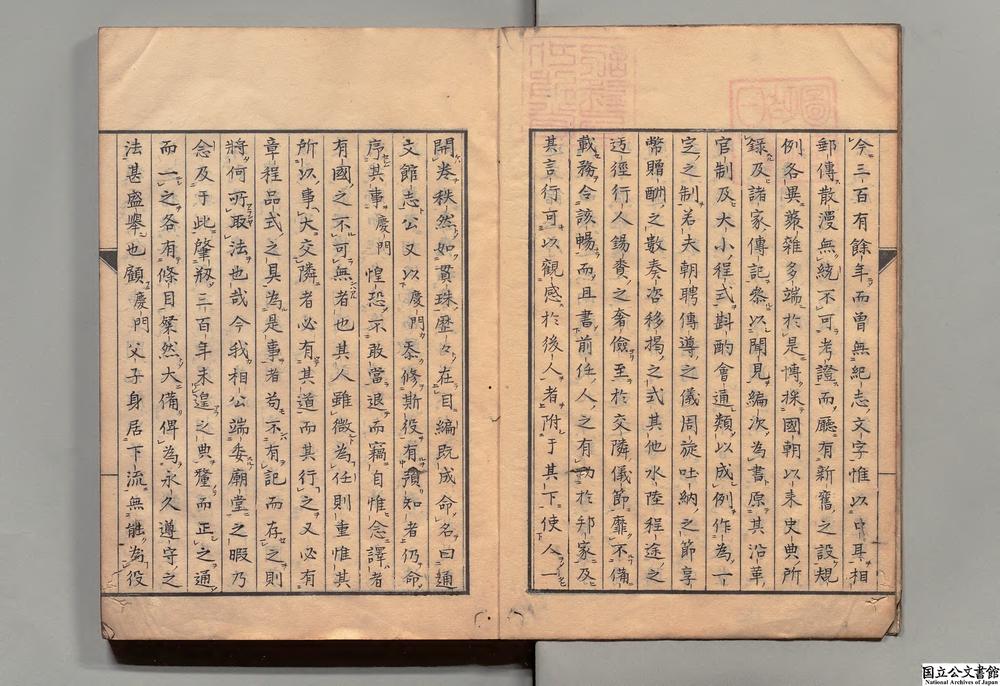 今三百有餘年而曾無紀志文字惟以口耳相
郵傳散漫無統不可考證而廳有新舊之設規
例各異叢雜多端於是博採國朝以來史典所
錄及諸家傳記參以聞見編次為書原其沿革
官制及大小程式斟酌會通類以成例作為一
定之制若夫朝聘傳導之儀周旋吐納之節享
幣贈酬之數奏咨移揭之式其他水陸程途之
迃徑行人錫賚之奢儉至於交隣儀節靡不備
載務令該暢而且書前任人之有功於邦家及
其言行可以觀感於後人者附于其下使人一
開卷秩然如貫珠歷々在目編既成命名曰通
文館志公又以慶門忝修斯役有預知者仍命
序其事慶門惶恐不敢當退而竊自惟念譯者
有國之不可無者也其人雖微為任則重惟其
所以事大交隣者必有其道而其行之又必有
章程品式之具為是事者苟不有記而存之則
將何所取法也哉今我相公端委廟堂之暇乃
念及于此肇刱三百年未遑之典釐而正之通
而一之各有條目粲然大備俾為永久遵守之
法甚盛舉也顧慶門父子身居下流無能為役
国立公文書館
National Archives of Japan